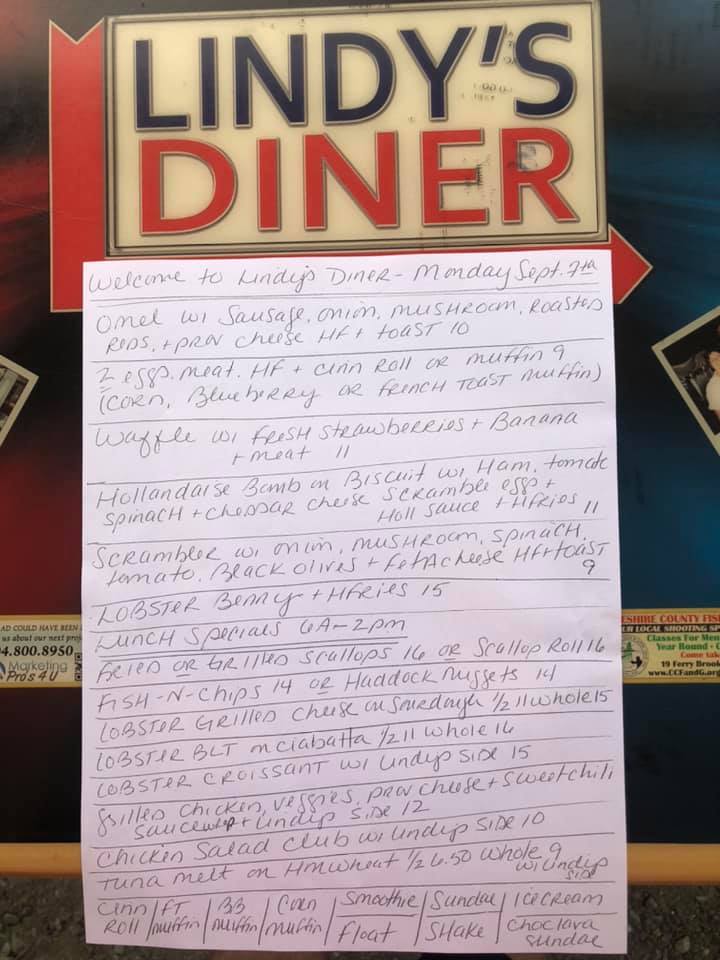 LINDY'S
DINER
Welcome to Lindy's Diner - Monday Sept. 7th
Omel w/ Sausage, onion, mushroom, Roasted
Reds, + prov cheese HF + toast 10
2 eggs. meat. HF + cinn Roll or muffin 9
(corn, Blueberry or french toast muffin)
Waffle w/ fresh strawberries + Banana
+ meat 11
Hollandaise Bomb on Biscuit w/ Ham, tomato
spinach + cheddar cheese scramble eggs +
Holl sauce + Hfries 11
Scrambler w/ onion, mushroom, spinach,
tomato, Black olives + feta cheese HF + toast
9
Lobster Benny + Hfries 15
Lunch Specials 6A-2pm
Fried or Grilled Scallops 16 or Scallop Roll 16
Fish-N-Chips 14 or Haddock Nuggets 14
Lobster Grilled cheese on Sourdough 1/2 11 whole 15
Lobster BLT on ciabatta 1/2 11 whole 16
Lobster Croissant w/ Lindys side 15
Grilled chicken, veggies, prov cheese + sweet chili
sauce wrap + Lindys side 12
Chicken Salad Club w/ Lindys side 10
Tuna melt on HM wheat 1/2 6.50 whole 9
w/ Lindys
side
Cinn FT BB Corn Smoothie Sundae ice cream
Roll muffin muffin muffin float Shake choclava
sundae
AD COULD HAVE BEEN
us about our next proj
4.800.8950
Marketing
Pros 4 U
ESHIRE COUNTY FIS
UR LOCAL SHOOTING SP
Classes For Me
Year Round -
Come tak
19 Ferry Brook
www.CCFandG.org